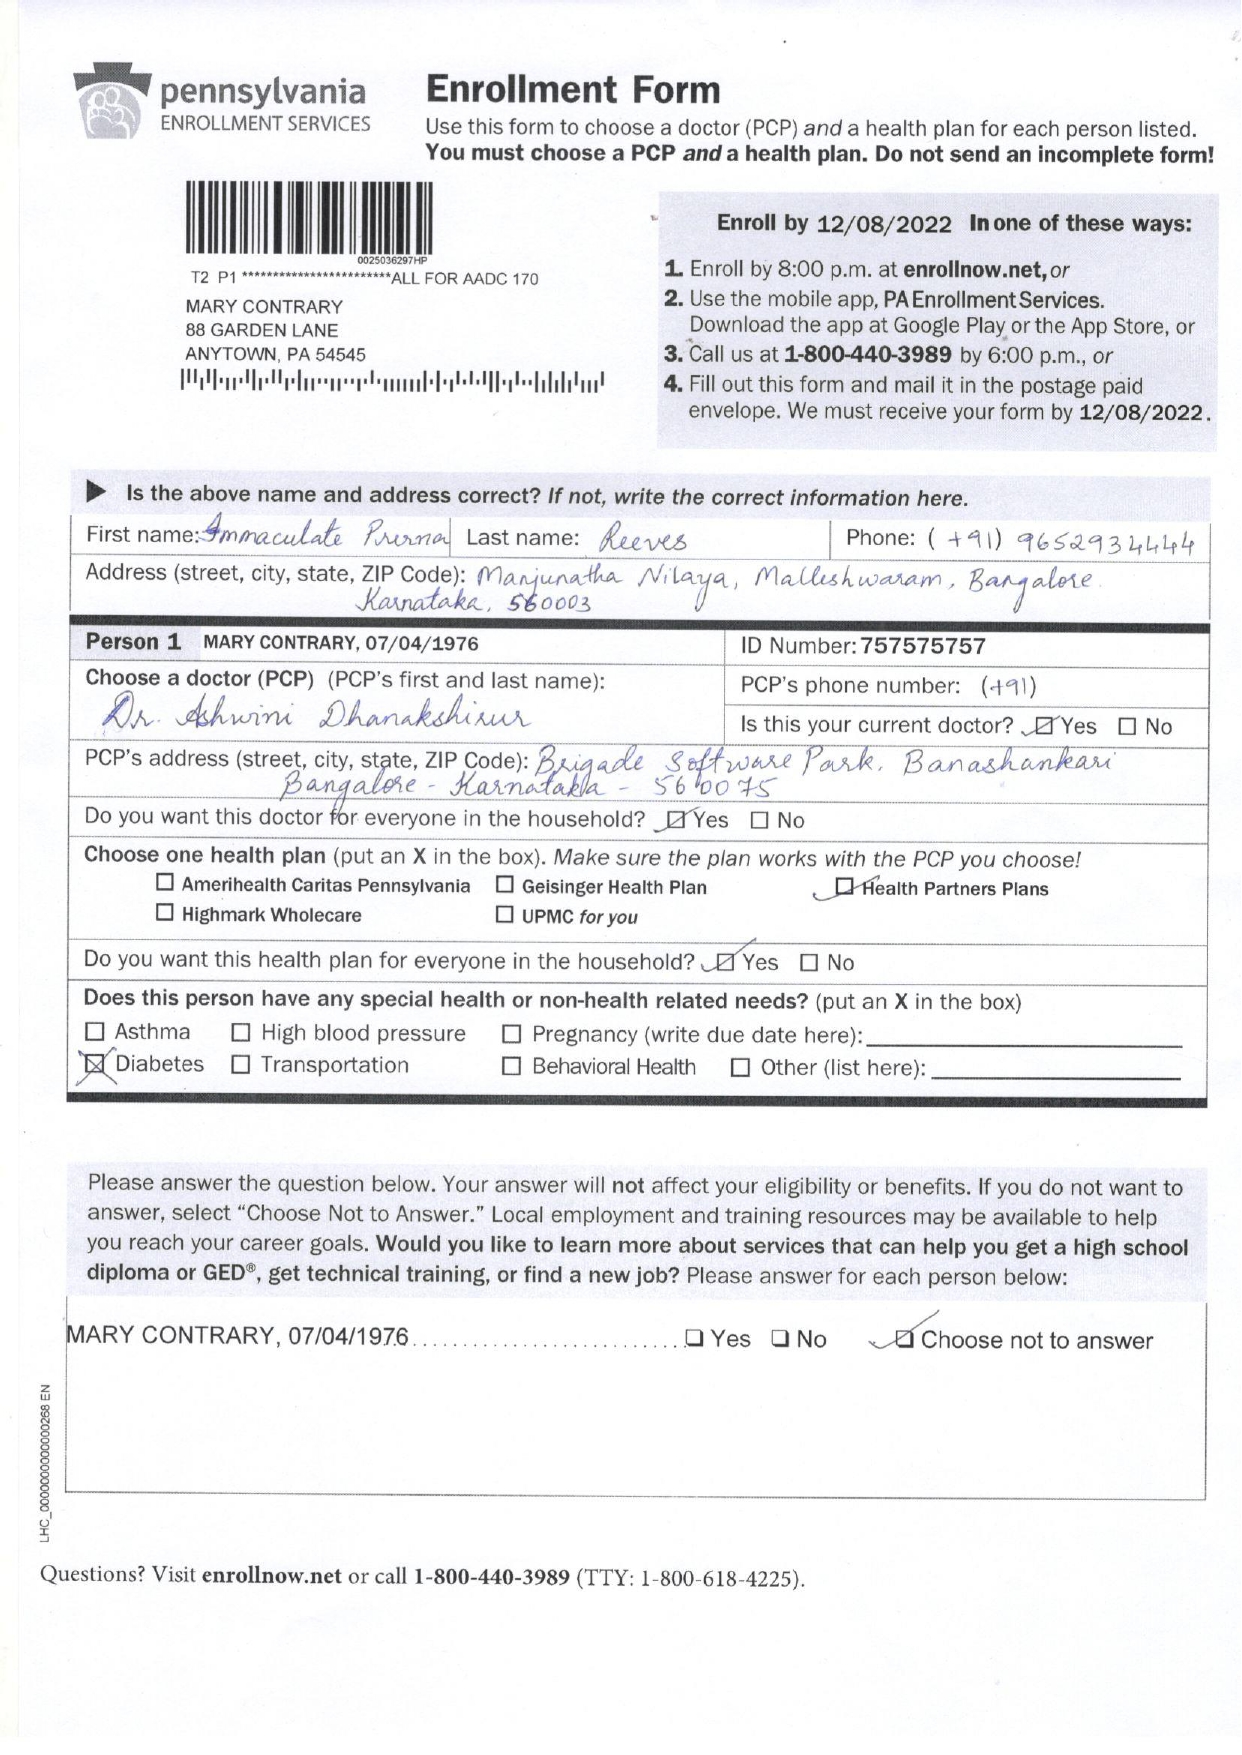 pennsylvania
ENROLLMENT SERVICES
Enrollment Form
Use this form to choose a doctor (PCP) and a health plan for each person listed.
You must choose a PCP and a health plan. Do not send an incomplete form!
0025036297HP
T2 P1 ************************ALL FOR AADC 170
MARY CONTRARY
88 GARDEN LANE
ANYTOWN, PA 54545
Enroll by 12/08/2022 In one of these ways:
1. Enroll by 8:00 p.m. at enrollnow.net, or
2. Use the mobile app, PA Enrollment Services.
Download the app at Google Play or the App Store, or
3. Call us at 1-800-440-3989 by 6:00 p.m., or
4. Fill out this form and mail it in the postage paid
envelope. We must receive your form by 12/08/2022.
▶ Is the above name and address correct? If not, write the correct information here.
First name: Immaculate Purna Last name: Reeves Phone: (+91) 9652934444
Address (street, city, state, ZIP Code): Manjunatha Nilaya, Malleshwaram, Bangalore
Karnataka, 560003
Person 1 MARY CONTRARY, 07/04/1976 ID Number: 757575757
Choose a doctor (PCP) (PCP's first and last name):
Dr. Ashwini Dhanakshirur
PCP's phone number: (+91)
Is this your current doctor? ☑ Yes ☐ No
PCP's address (street, city, state, ZIP Code): Brigade Software Park, Banashankari
Bangalore - Karnatakla - 560075
Do you want this doctor for everyone in the household? ☑ Yes ☐ No
Choose one health plan (put an X in the box). Make sure the plan works with the PCP you choose!
☐ Amerihealth Caritas Pennsylvania ☐ Geisinger Health Plan ☑ Health Partners Plans
☐ Highmark Wholecare ☐ UPMC for you
Do you want this health plan for everyone in the household? ☑ Yes ☐ No
Does this person have any special health or non-health related needs? (put an X in the box)
☐ Asthma ☐ High blood pressure ☐ Pregnancy (write due date here):
☒ Diabetes ☐ Transportation ☐ Behavioral Health ☐ Other (list here):
Please answer the question below. Your answer will not affect your eligibility or benefits. If you do not want to
answer, select "Choose Not to Answer." Local employment and training resources may be available to help
you reach your career goals. Would you like to learn more about services that can help you get a high school
diploma or GED®, get technical training, or find a new job? Please answer for each person below:
MARY CONTRARY, 07/04/1976 ☐ Yes ☐ No ☑ Choose not to answer
LHC_0000000000000268 EN
Questions? Visit enrollnow.net or call 1-800-440-3989 (TTY: 1-800-618-4225).